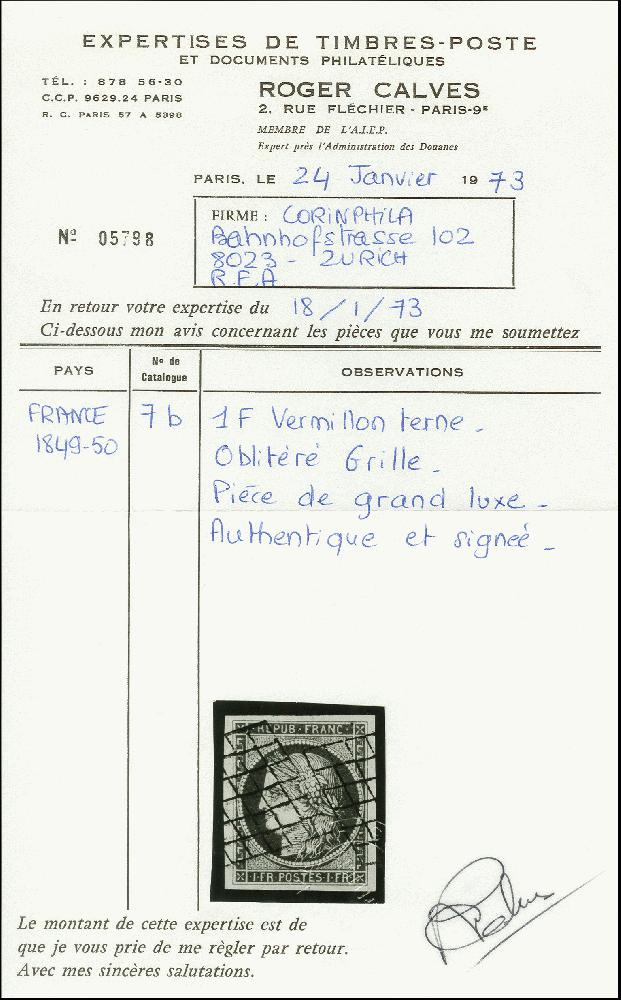 EXPERTISES DE TIMBRES-POSTE
ET DOCUMENTS PHILATÉLIQUES
TÉL. : 878 56-30
C.C.P. 9629.24 PARIS
R. C. PARIS 57 A 5398
ROGER CALVES
2, RUE FLÉCHIER - PARIS-9ᵉ
MEMBRE DE L'A.I.E.P.
Expert près l'Administration des Douanes
PARIS, LE 24 Janvier 1973
Nº 05798
FIRME : CORINPHILA
Bahnhofstrasse 102
8023 - ZURICH
R.F.A
En retour votre expertise du 18/1/73
Ci-dessous mon avis concernant les pièces que vous me soumettez
PAYS
Nº de Catalogue
OBSERVATIONS
FRANCE 7b 1F Vermillon terne -
1849-50
Oblitéré Grille -
Piéce de grand luxe -
Authentique et signeé -
REPUB · FRANC
1 · FR POSTES · 1 · FR
Le montant de cette expertise est de
que je vous prie de me règler par retour.
Avec mes sincères salutations.
Calves